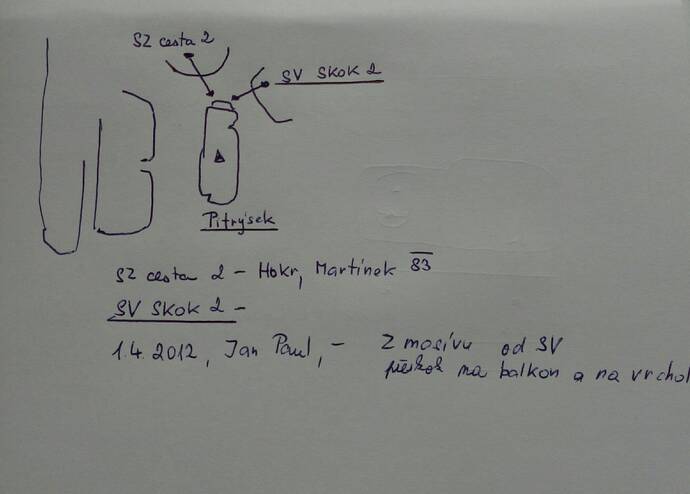 SZ cesta 2
SV Skok 2
Pitrýsek
SZ cesta 2 - Hokr, Martínek 83
SV Skok 2 -
1.4. 2012, Jan Paul, - Z masívu od SV
přeskok na balkon a na vrchol